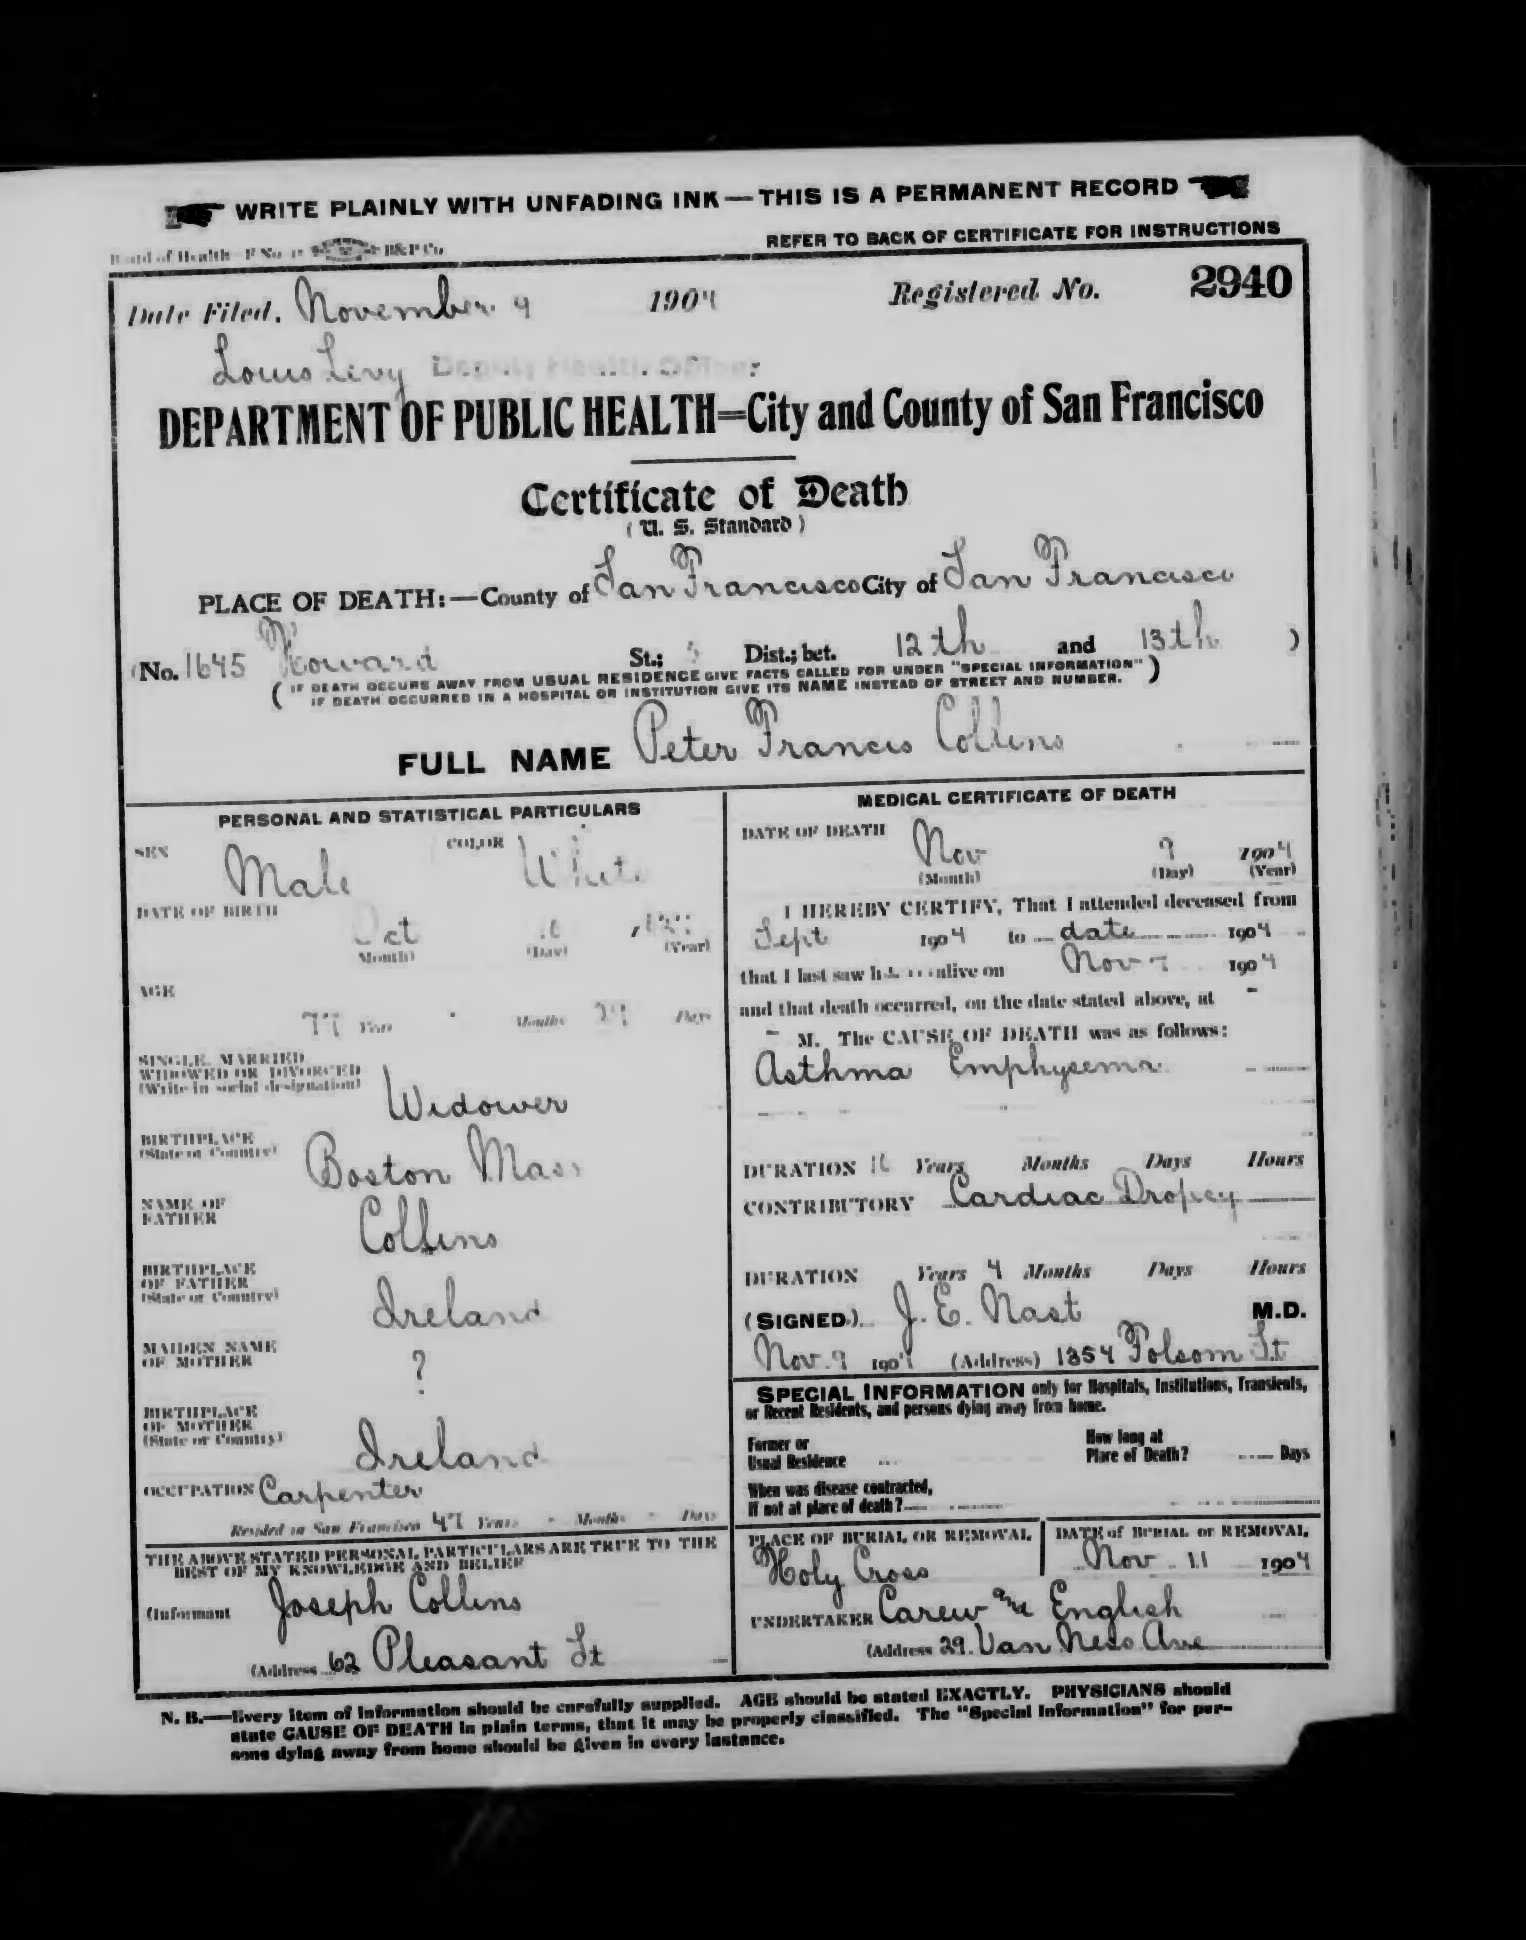 WRITE PLAINLY WITH UNFADING INK — THIS IS A PERMANENT RECORD
Board of Health—F No. B&P Co. REFER TO BACK OF CERTIFICATE FOR INSTRUCTIONS
Date Filed, November 9 1904 Registered No. 2940
Louis Levy Deputy Health Officer
DEPARTMENT OF PUBLIC HEALTH=City and County of San Francisco
Certificate of Death
( U. S. Standard )
PLACE OF DEATH:—County of San Francisco City of San Francisco
(No. 1645 Howard St.; Dist.; bet. 12th and 13th )
( IF DEATH OCCURS AWAY FROM USUAL RESIDENCE GIVE FACTS CALLED FOR UNDER "SPECIAL INFORMATION" )
IF DEATH OCCURRED IN A HOSPITAL OR INSTITUTION GIVE ITS NAME INSTEAD OF STREET AND NUMBER.
FULL NAME Peter Francis Collins
PERSONAL AND STATISTICAL PARTICULARS
SEX Male COLOR White
DATE OF BIRTH
Oct
(Month) (Day) (Year)
AGE
77 Years Months 29 Days
SINGLE, MARRIED
WIDOWED OR DIVORCED
(Write in social designation)
Widower
BIRTHPLACE
(State or Country)
Boston Mass
NAME OF
FATHER
Collins
BIRTHPLACE
OF FATHER
(State or Country)
Ireland
MAIDEN NAME
OF MOTHER
?
BIRTHPLACE
OF MOTHER
(State or Country)
Ireland
OCCUPATION Carpenter
Resided in San Francisco 47 Years - Months - Days
THE ABOVE STATED PERSONAL PARTICULARS ARE TRUE TO THE
BEST OF MY KNOWLEDGE AND BELIEF
(Informant Joseph Collins
(Address 62 Pleasant St
MEDICAL CERTIFICATE OF DEATH
DATE OF DEATH
Nov 9 1904
(Month) (Day) (Year)
I HEREBY CERTIFY, That I attended deceased from
Sept 1904 to date 1904
that I last saw him alive on Nov 7 1904
and that death occurred, on the date stated above, at -
- M. The CAUSE OF DEATH was as follows:
Asthma Emphysema
DURATION Years Months Days Hours
CONTRIBUTORY Cardiac Dropcy
DURATION Years 4 Months Days Hours
(SIGNED) J. E. Nast M.D.
Nov. 9 1904 (Address) 1354 Folsom St
SPECIAL INFORMATION only for Hospitals, Institutions, Transients,
or Recent Residents, and persons dying away from home.
Former or
Usual Residence
How long at
Place of Death? Days
When was disease contracted,
If not at place of death?
PLACE OF BURIAL OR REMOVAL
Holy Cross
DATE of BURIAL or REMOVAL
Nov. 11 1904
UNDERTAKER Carew and English
(Address 29 Van Ness Ave
N. B.—Every item of information should be carefully supplied. AGE should be stated EXACTLY. PHYSICIANS should
state CAUSE OF DEATH in plain terms, that it may be properly classified. The "Special Information" for per-
sons dying away from home should be given in every instance.